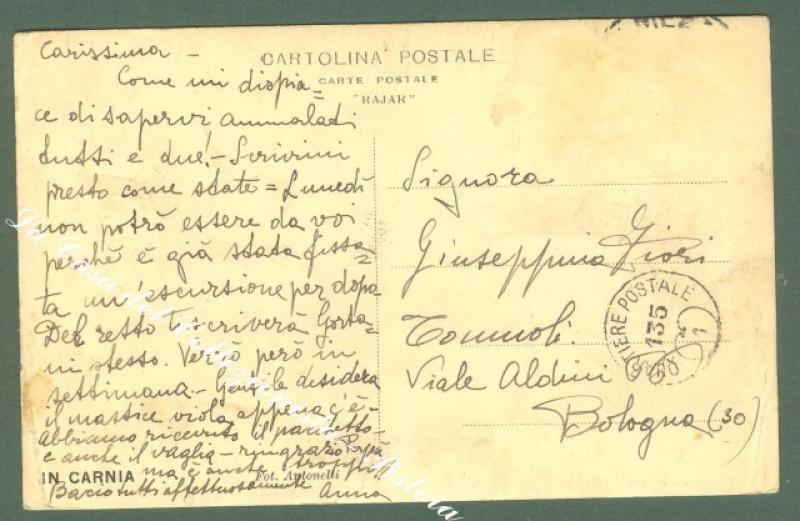 Carissima -
Come mi dispia=
ce di sapervi ammalati
tutti e due! - Scrivimi
presto come state = Lunedì
non potrò essere da voi
perchè è già stata fissa=
ta un'escursione per dopo
Del resto ti scriverà Gorta=
ni stesso. Verrò però in
settimana. - Gentile desidera
il mastice viola appena c'è -
Abbiamo ricevuto il pacchetto
e anche il vaglia - ringrazio Papà
ma è anche troppo!!
Bacio tutti affettuosamente
Anna
IN CARNIA
Fot. Antonelli
CARTOLINA POSTALE
CARTE POSTALE
"RAJAR"
Signora
Giuseppina Fiori
Tommoli
Viale Aldini
Bologna (30)
POSTALE
135
MILZ
La Casa del